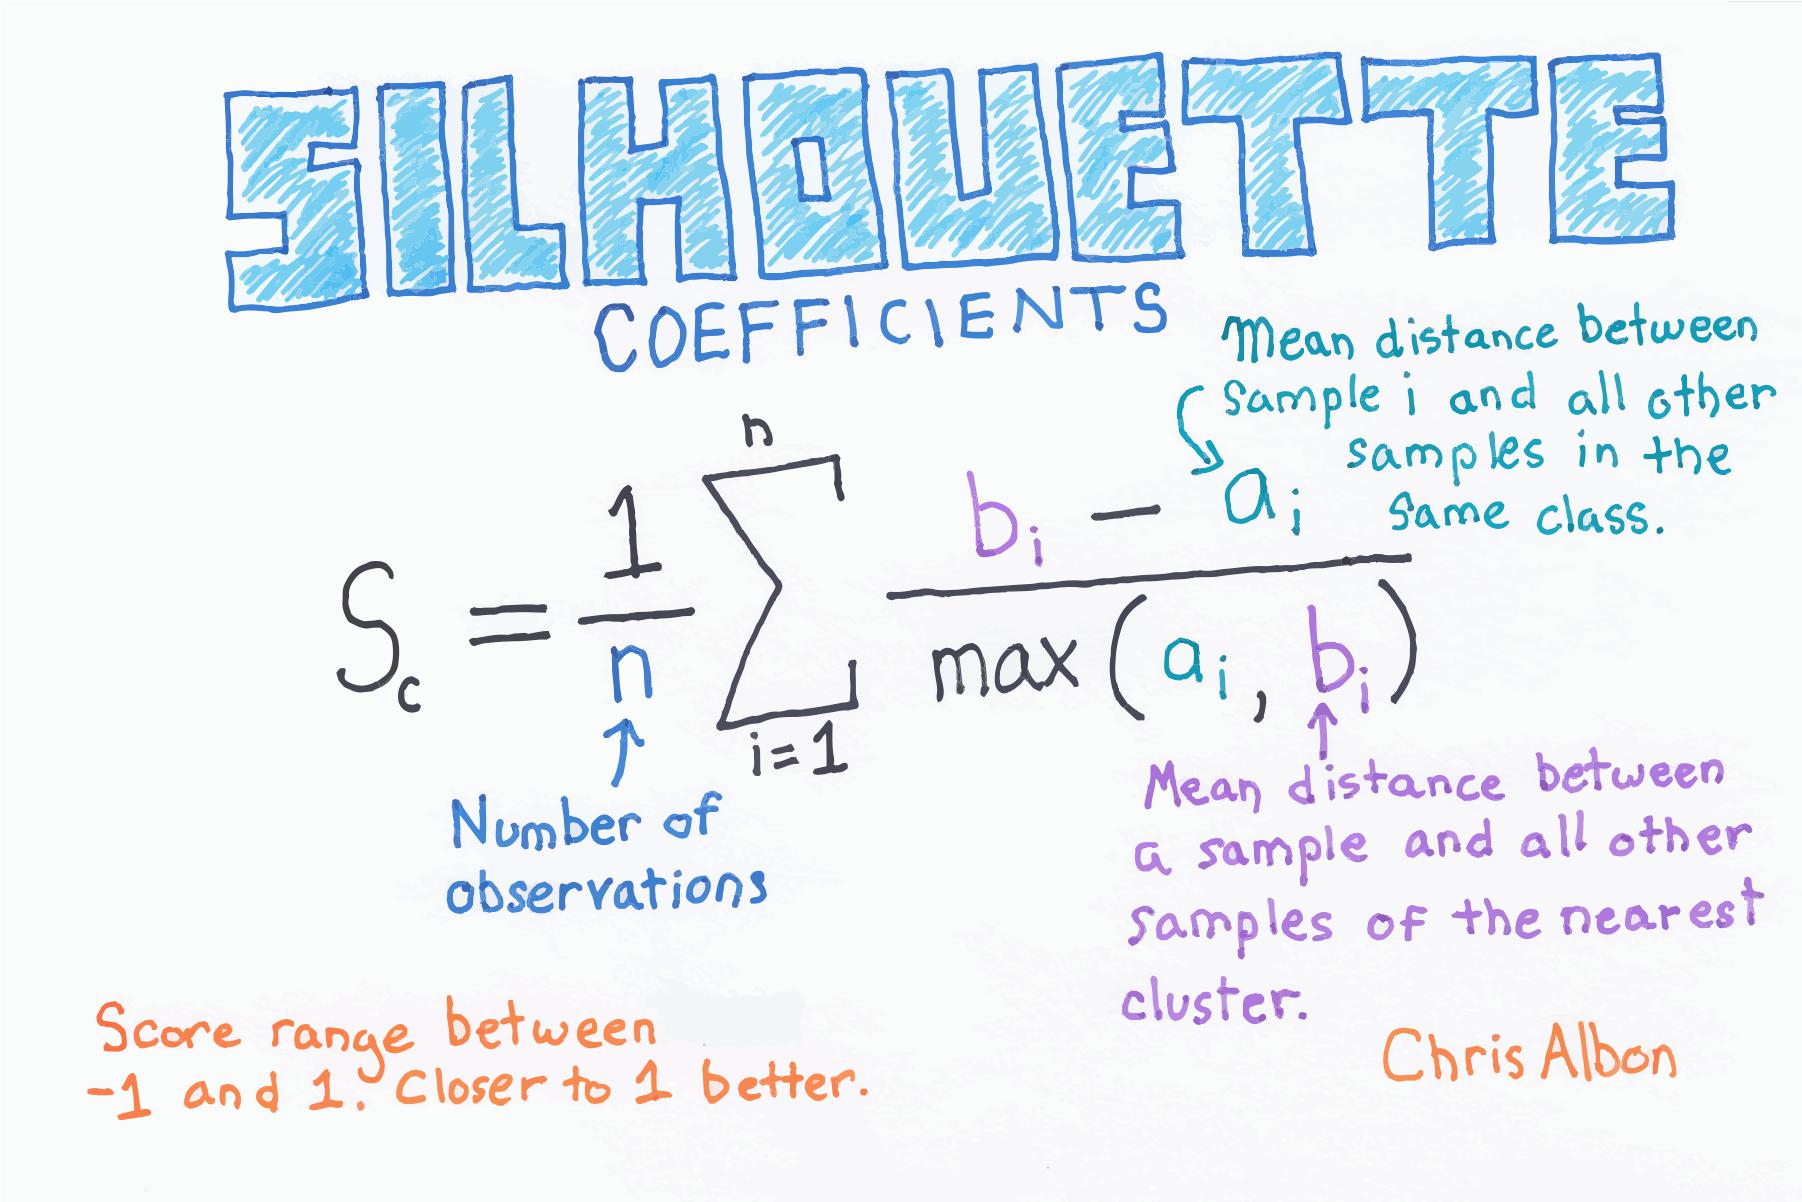 SILHOUETTE
COEFFICIENTS
Mean distance between
sample i and all other
samples in the
same class.
S_c = 1/n ∑ (i=1 to n) (b_i − a_i) / max(a_i, b_i)
Number of
observations
Mean distance between
a sample and all other
samples of the nearest
cluster.
Score range between
-1 and 1. Closer to 1 better.
Chris Albon